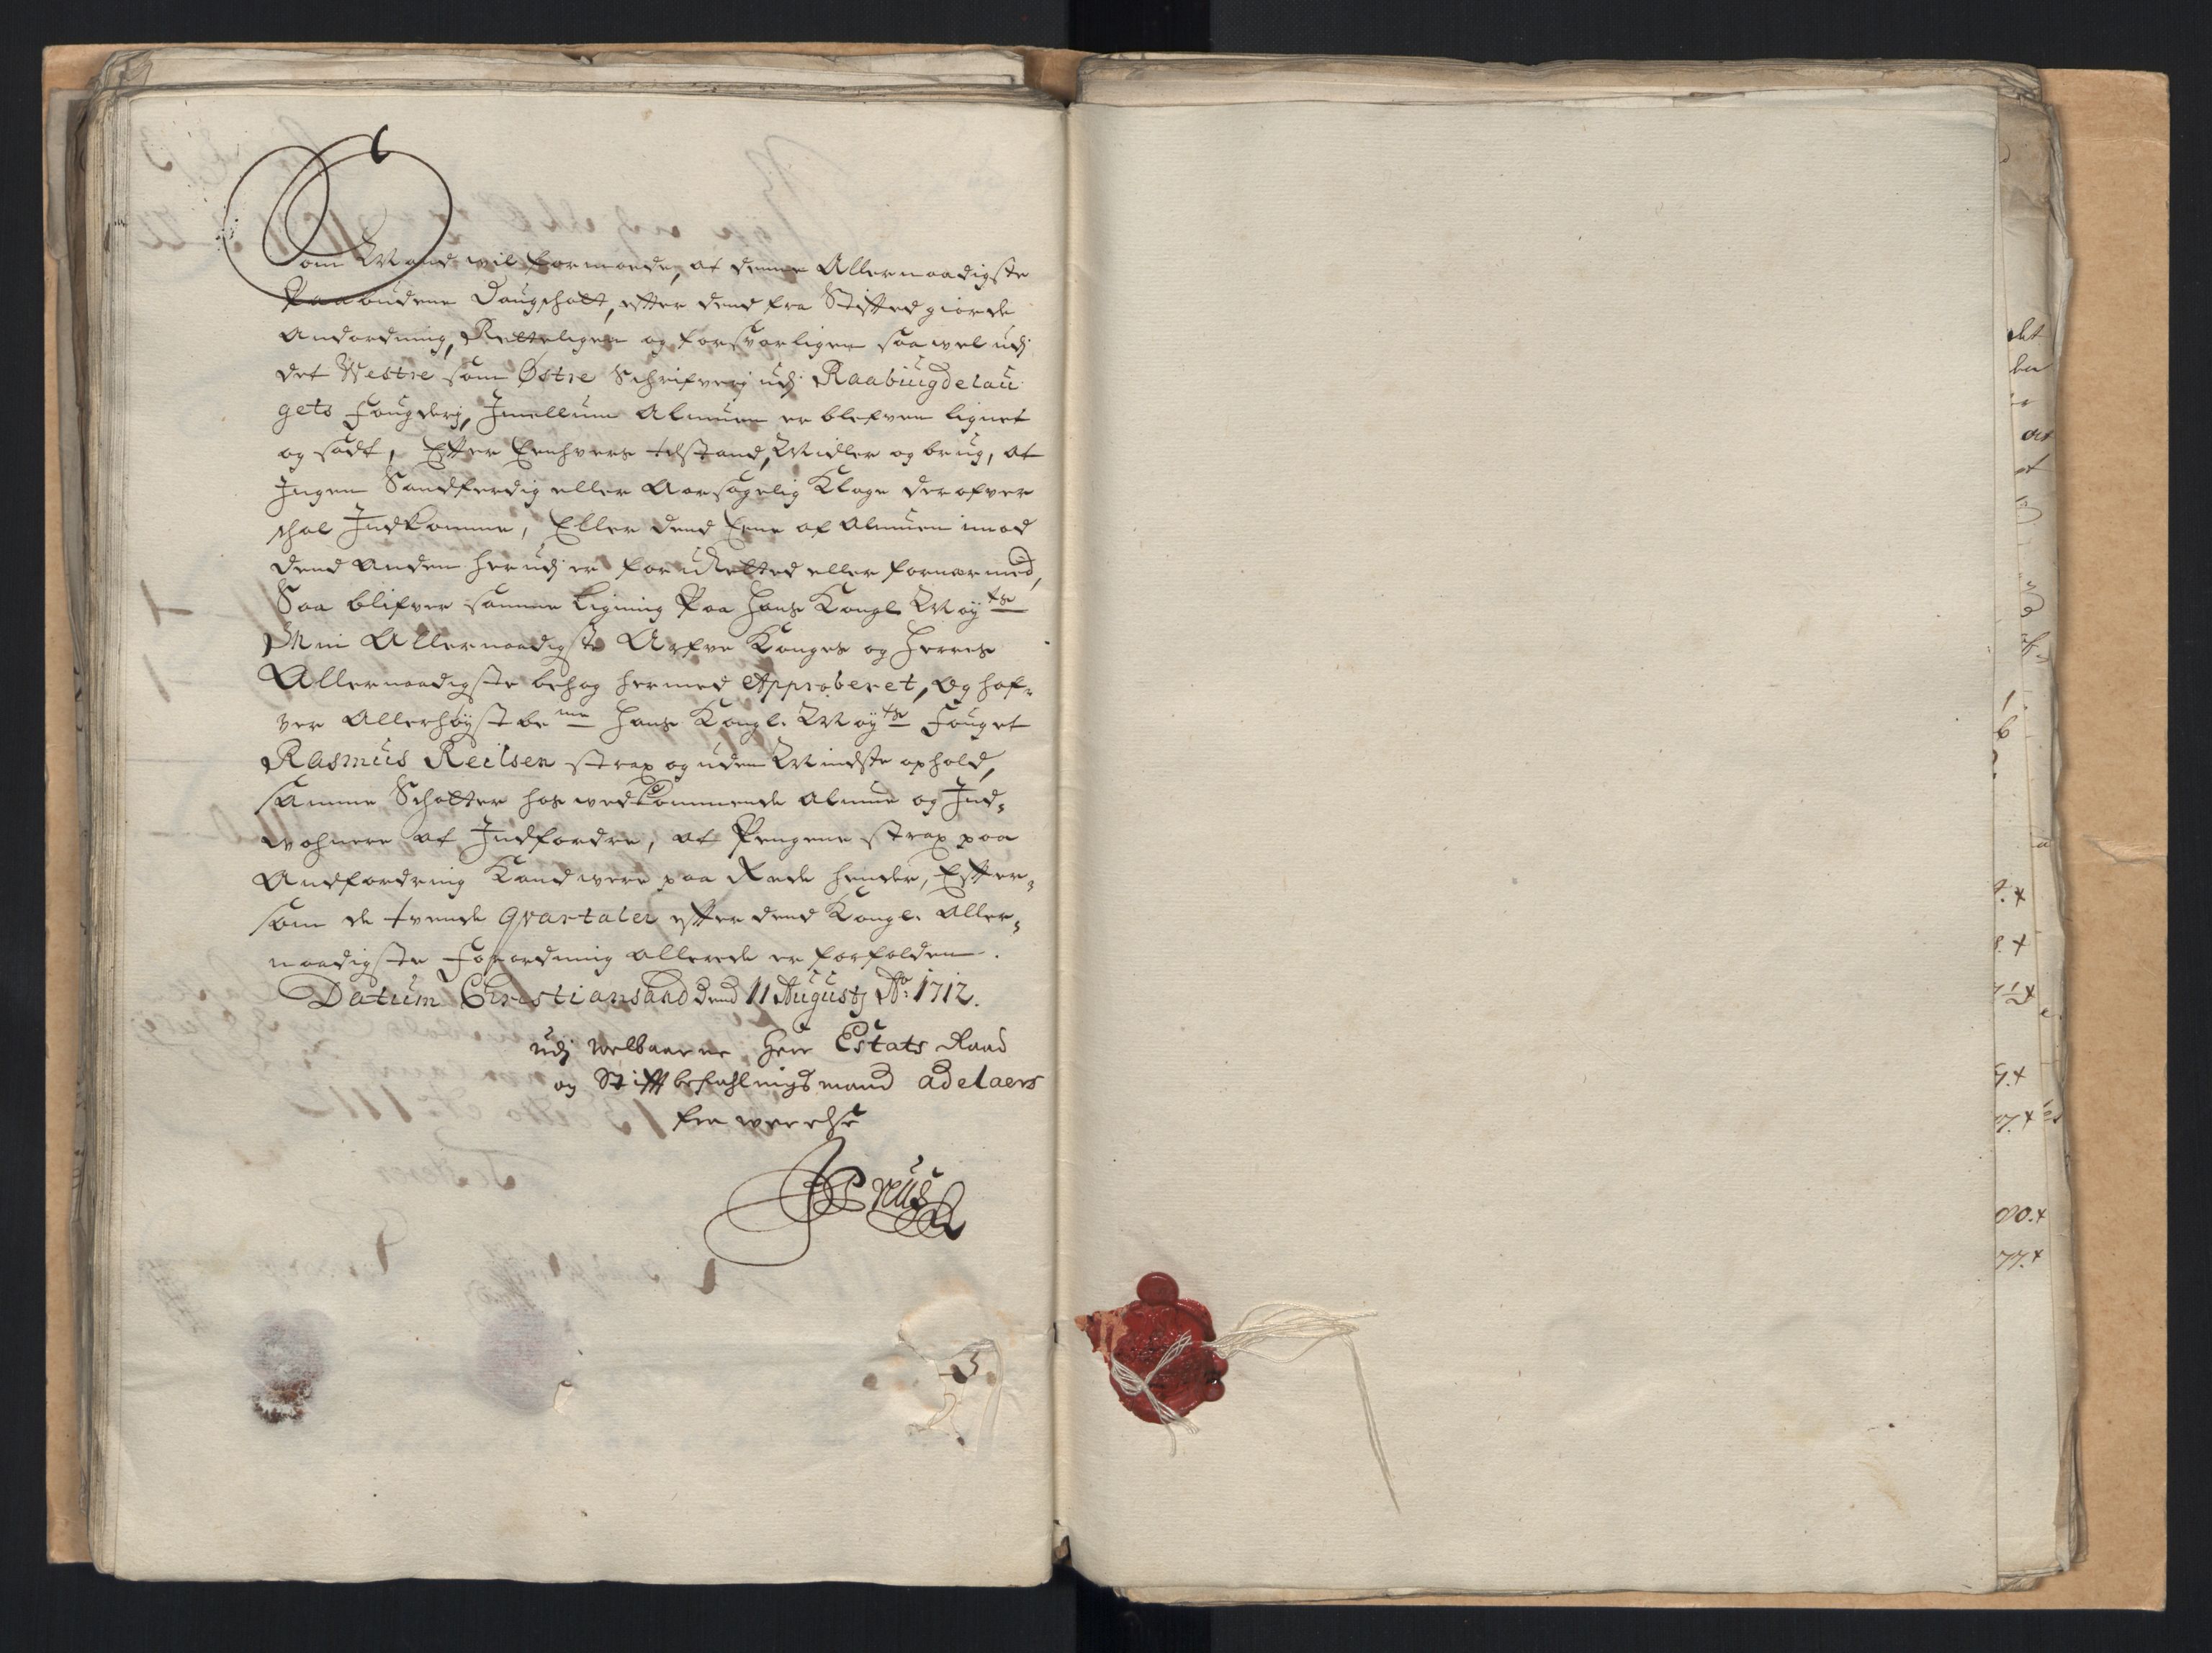 Som Mand vil formoede, at denne Allernaadigste
Paabudene Daugschatt, efter dend fra Stifted giorde
Andordning, Retteligen og forsvarligen saa vel udj
det Westre som Østre Schrifverj udj Raabüigdelau
gets Fougderj, Jmellum Almuen er blefven lignet
og sadt, Efter Eenhvers tilstand, Midler og brug, at
Jngen Sandferdig eller Aarsagelig Klage derofver
schal Jndkomme, Eller dend Eene af Almuen imod
dend anden herudj er for uRetted eller fornermed,
Saa blifver samme Ligning Paa Hans Kongl Mayts
Min Allernaadigste Arfve Konges og Herres
Allernaadigste behag hermed Approberet, Og haf-
ver Allerhøystbemte Hans Kongl. Mayts Fouget
Rasmüs Reilsen strax og uden Mindste ophold,
samme Schatter hos vedkommende Almue og Jnd-
wohnere at Jndfordre, at Pengene strax paa
Andfordring Kand vere paa Rede hender, Efter-
som de tvende Qvartaler efter dend Kongl. Aller-
naadigste Forordning allerede er forfalden.
Datum Christiansand dend 11 Augustj Ao: 1712.
udj Welbaarne Herr Estats Raad
og Stiftbefahlingsmand adelaers
fra werelse